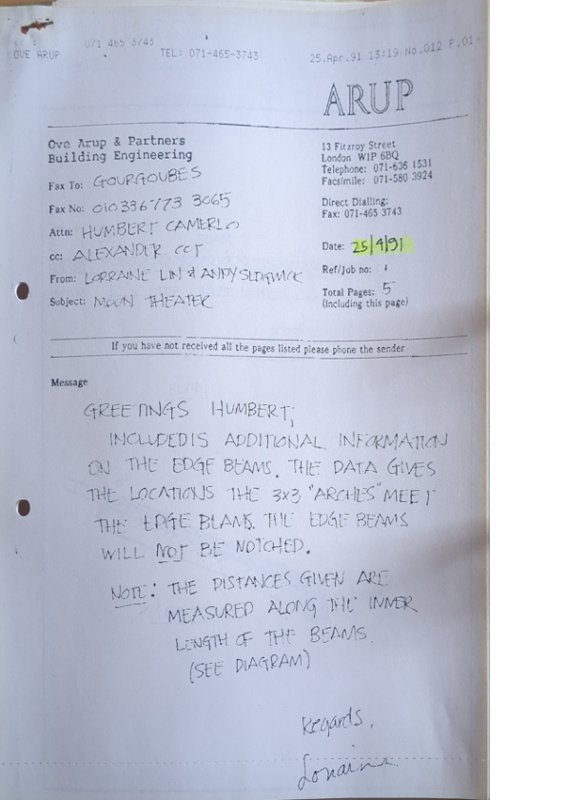 071 465 3743
OVE ARUP TEL: 071-465-3743 25.Apr.91 13:19 No.012 P.01
ARUP
Ove Arup & Partners
Building Engineering
13 Fitzroy Street
London W1P 6BQ
Telephone: 071-636 1531
Facsimile: 071-580 3924
Fax To: GOURGOUBES
Fax No: 010336773 3065
Direct Dialling:
Fax: 071-465 3743
Attn: HUMBERT CAMERLO
cc: ALEXANDER COT
Date: 25/4/91
From: LORRAINE LIN & ANDY SEDGWICK
Ref/Job no:
Subject: MOON THEATER
Total Pages: 5
(Including this page)
If you have not received all the pages listed please phone the sender
Message
GREETINGS HUMBERT,
INCLUDED IS ADDITIONAL INFORMATION
ON THE EDGE BEAMS. THE DATA GIVES
THE LOCATIONS THE 3x3 "ARCHES" MEET
THE EDGE BEAMS. THE EDGE BEAMS
WILL NOT BE NOTCHED.
NOTE: THE DISTANCES GIVEN ARE
MEASURED ALONG THE INNER
LENGTH OF THE BEAMS.
(SEE DIAGRAM)
Regards,
Lorraine